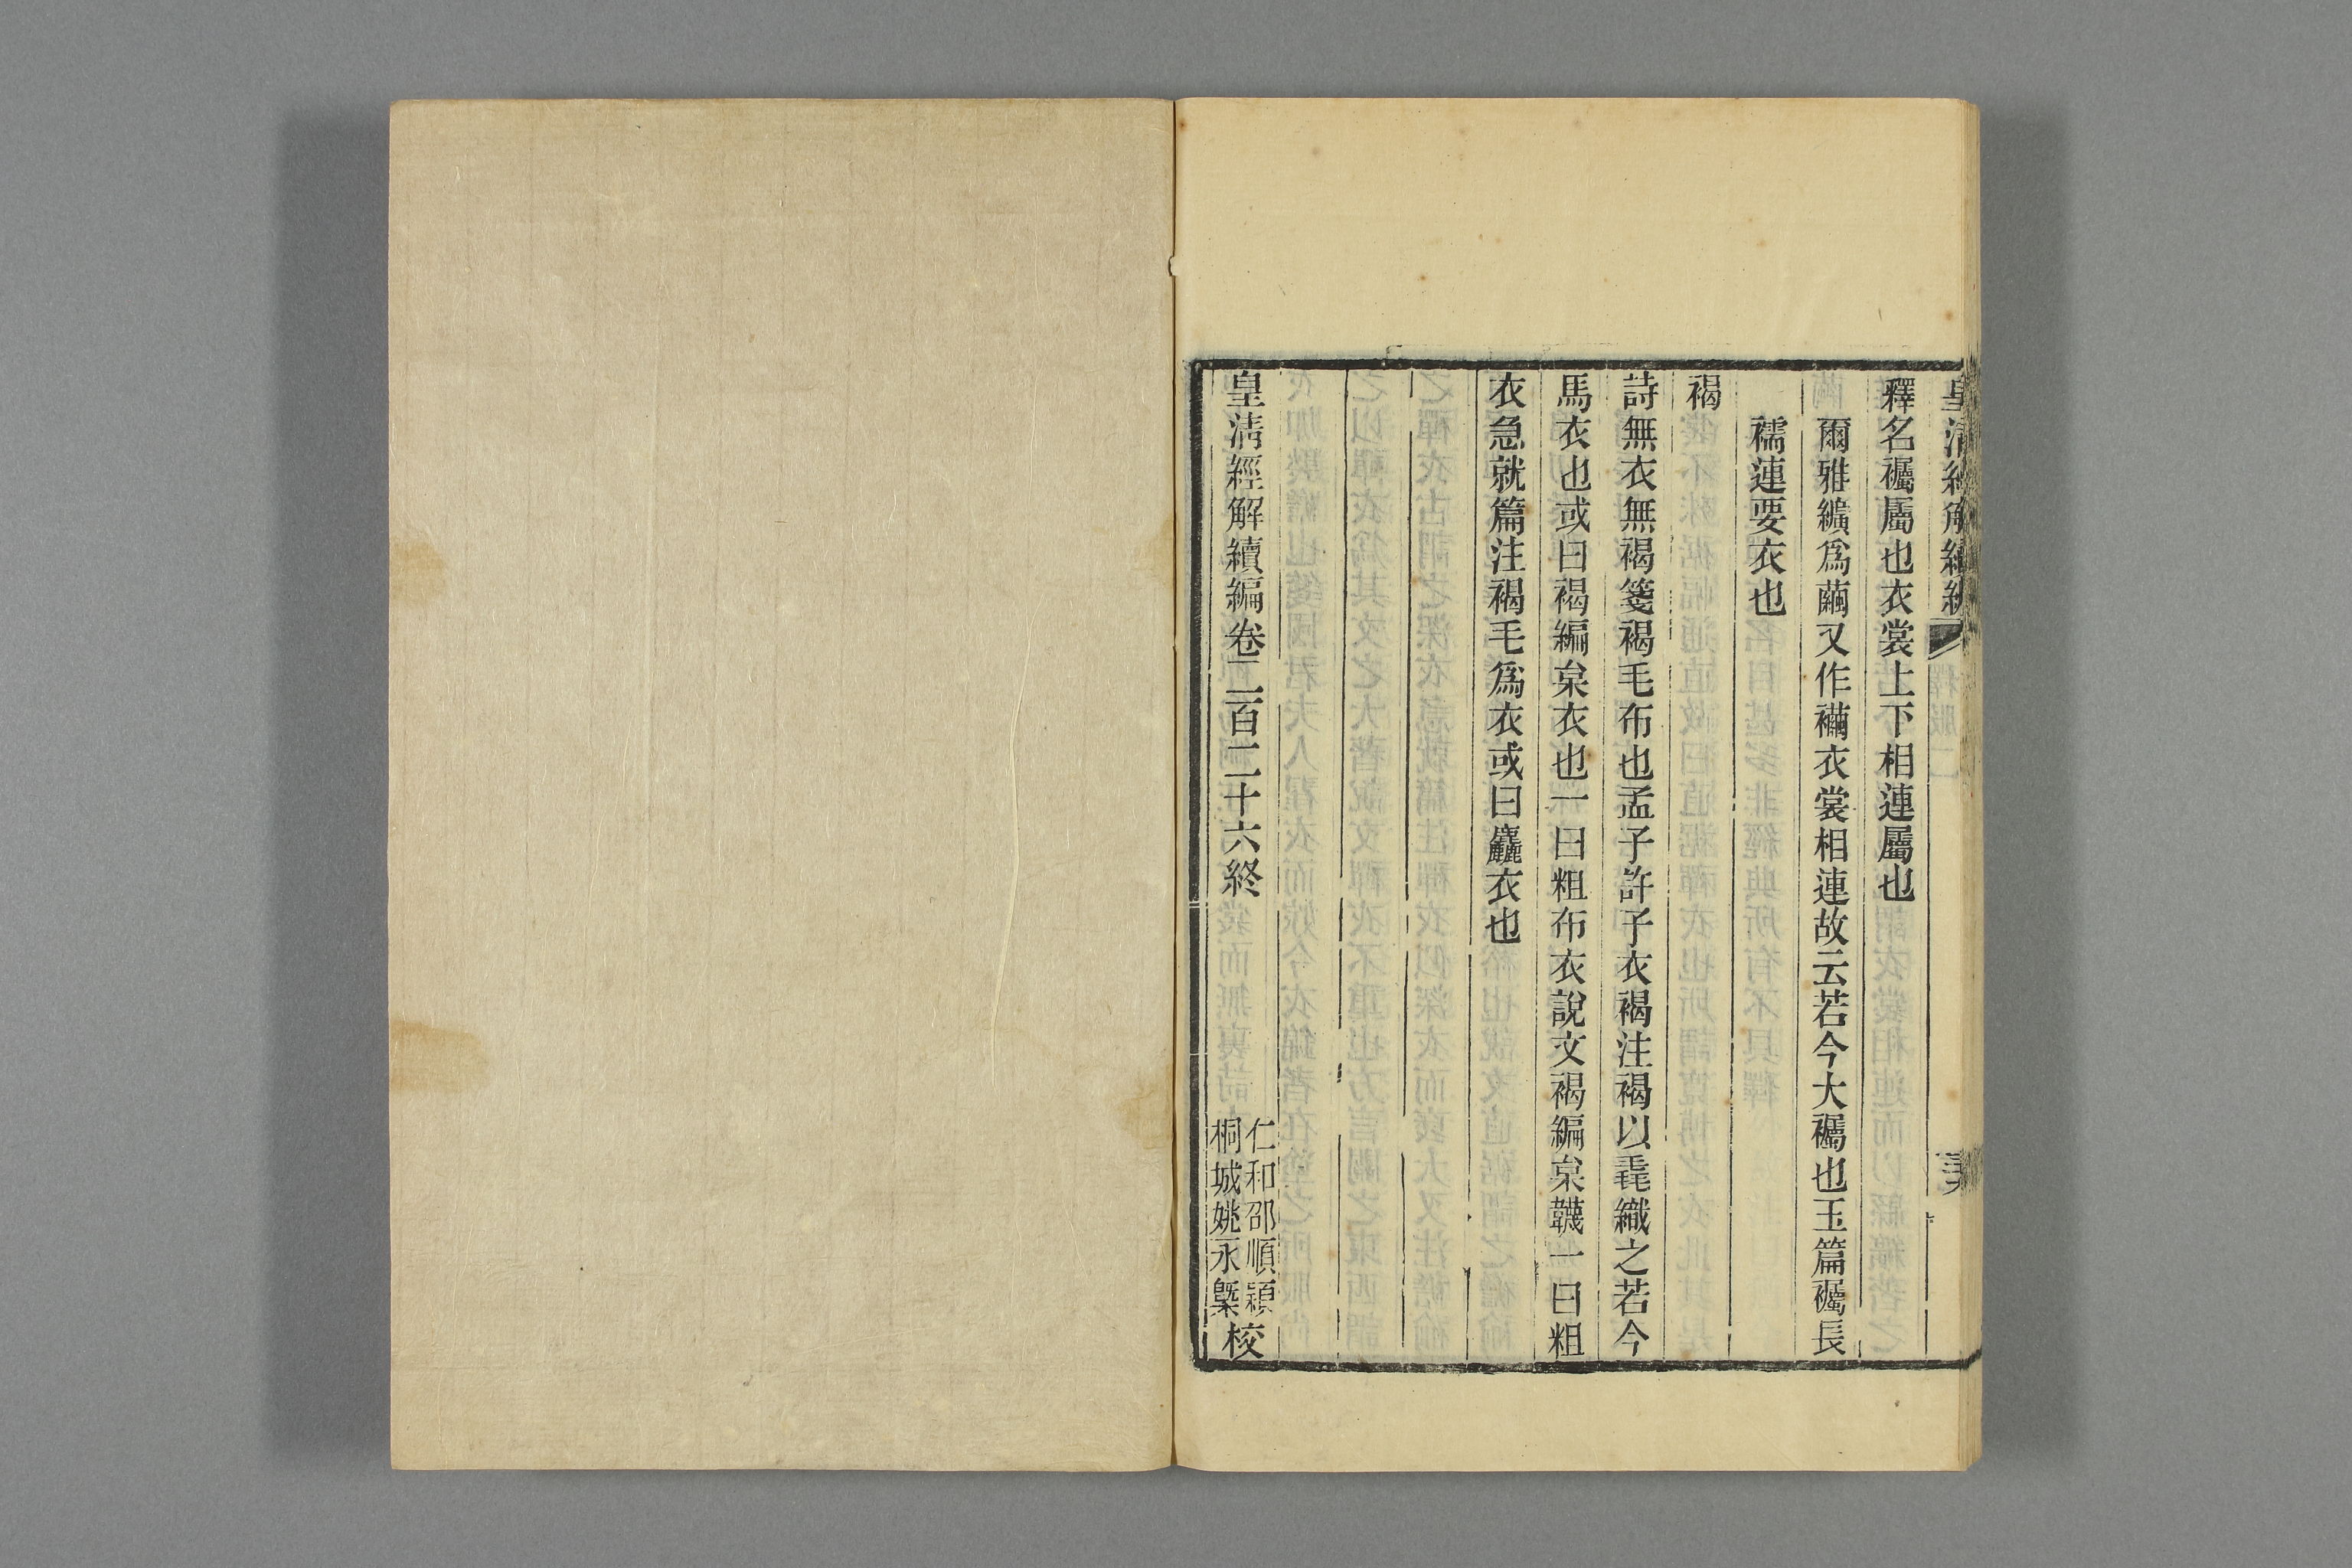 皇清經解續編
釋名襡屬也衣裳上下相連屬也
爾雅纊爲繭又作襺衣裳相連故云若今大襡也玉篇襡長
襦連要衣也
褐
詩無衣無褐箋褐毛布也孟子許子衣褐注褐以毳織之若今
馬衣也或曰褐編枲衣也一曰粗布衣說文褐編枲韤一曰粗
衣急就篇注褐毛爲衣或曰麤衣也
皇清經解續編卷二百二十六終
仁和邵順潁
桐城姚永㮣
校